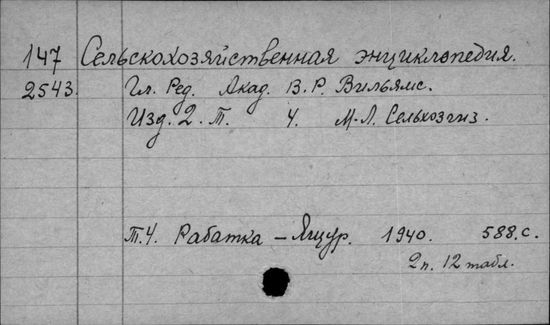 147 Сельскохозяйственная энциклопедия.
2543. Гл. Ред. Акад. В. Р. Вильямс.
Изд. 2. Т. 4. М.-Л. Сельхозгиз.
Т.4. Рабатка – Ящур. 1940. 588.с.
2п. 12 табл.